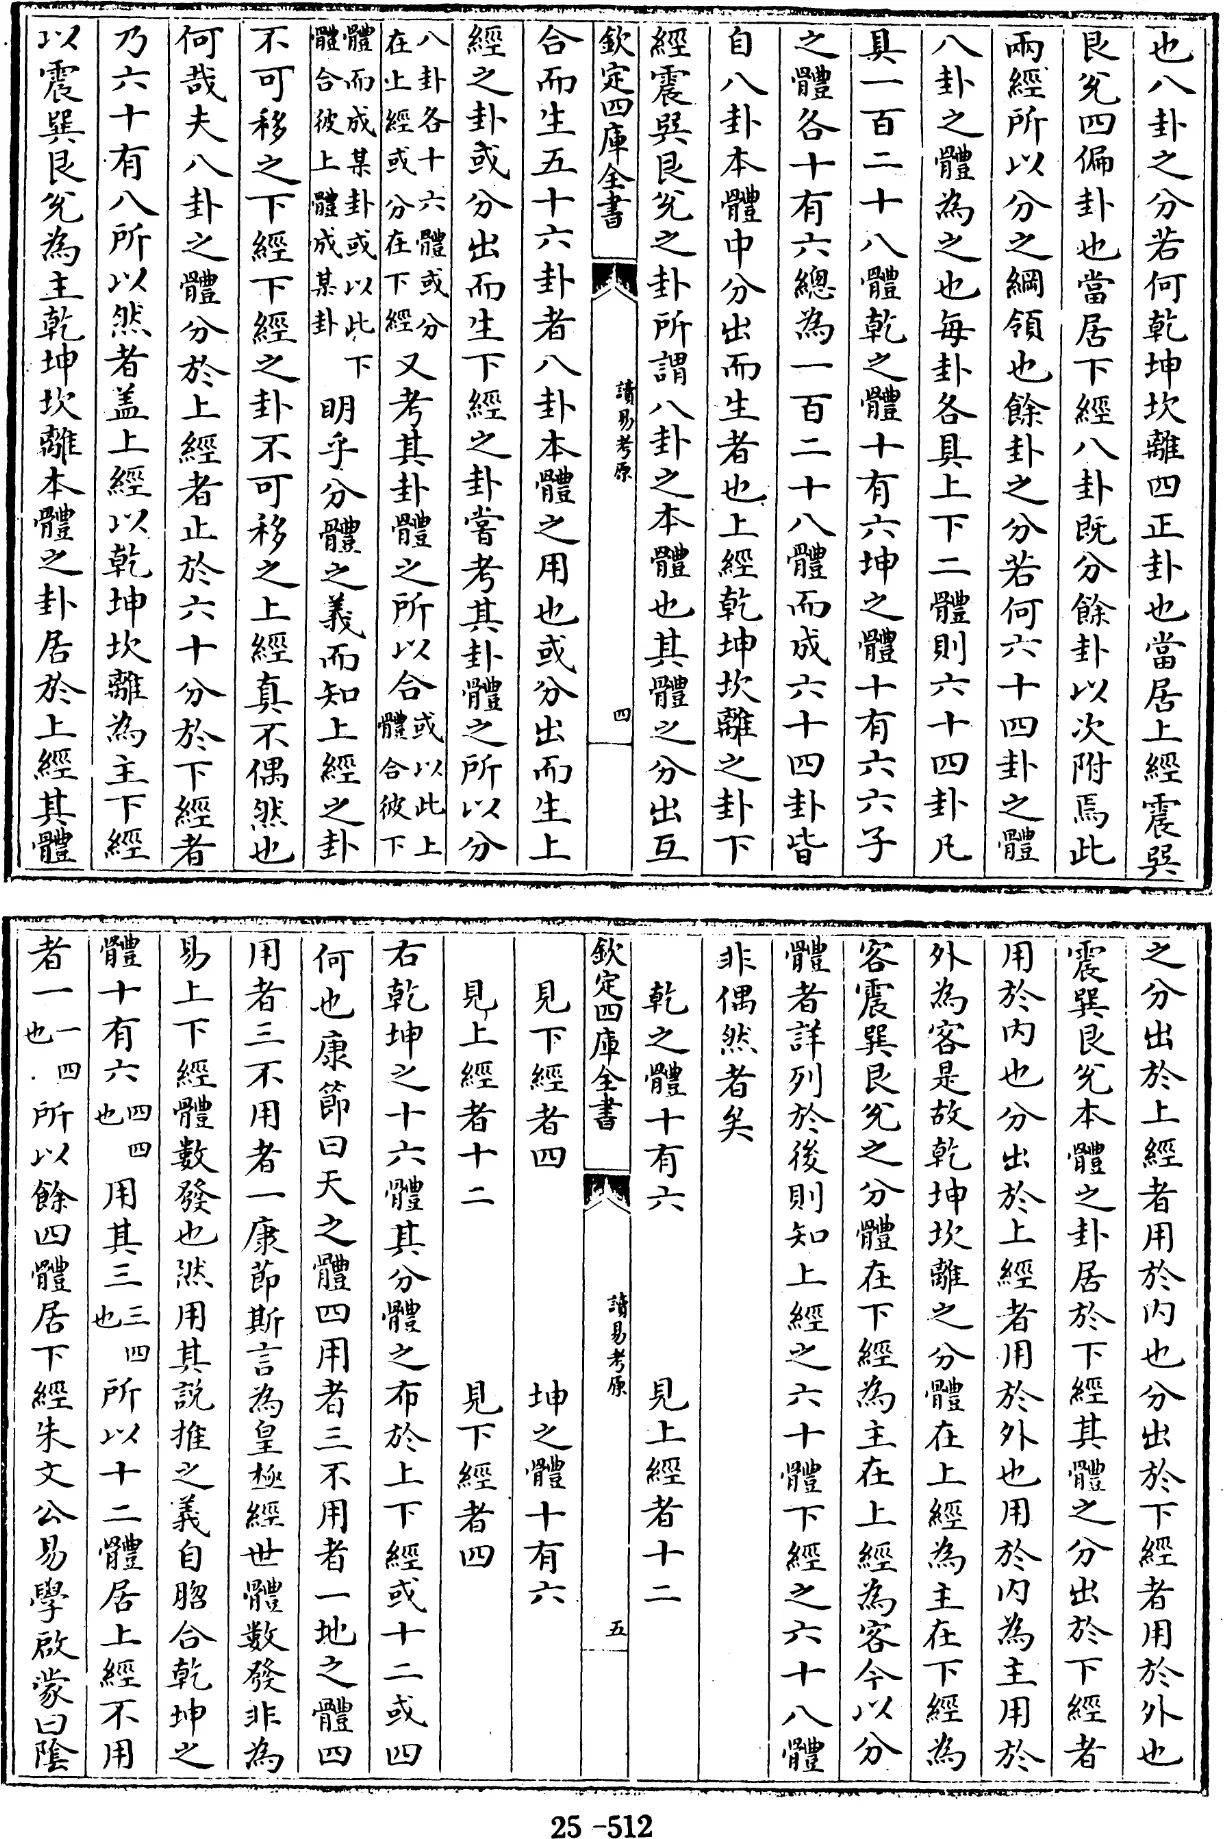 也八卦之分若何乾坤坎離四正卦也當居上經震巽
艮兊四偏卦也當居下經八卦既分餘卦以次附焉此
兩經所以分之綱領也餘卦之分若何六十四卦之體
八卦之體為之也每卦各具上下二體則六十四卦凡
具一百二十八體乾之體十有六坤之體十有六六子
之體各十有六總為一百二十八體而成六十四卦皆
自八卦本體中分出而生者也上經乾坤坎離之卦下
經震巽艮兊之卦所謂八卦之本體也其體之分出互
欽定四庫全書
讀易考原
四
合而生五十六卦者八卦本體之用也或分出而生上
經之卦或分出而生下經之卦嘗考其卦體之所以分
八卦各十六體或分
在上經或分在下經
又考其卦體之所以合
或以此上
體合彼下
體而成某卦或以此下
體合彼上體成某卦
明乎分體之義而知上經之卦
不可移之下經下經之卦不可移之上經真不偶然也
何哉夫八卦之體分於上經者止於六十分於下經者
乃六十有八所以然者盖上經以乾坤坎離為主下經
以震巽艮兊為主乾坤坎離本體之卦居於上經其體
之分出於上經者用於内也分出於下經者用於外也
震巽艮兊本體之卦居於下經其體之分出於下經者
用於内也分出於上經者用於外也用於内為主用於
外為客是故乾坤坎離之分體在上經為主在下經為
客震巽艮兊之分體在下經為主在上經為客今以分
體者詳列於後則知上經之六十體下經之六十八體
非偶然者矣
乾之體十有六 見上經者十二
欽定四庫全書
讀易考原
五
見下經者四 坤之體十有六
見上經者十二 見下經者四
右乾坤之十六體其分體之布於上下經或十二或四
何也康節曰天之體四用者三不用者一地之體四
用者三不用者一康節斯言為皇極經世體數發非為
易上下經體數發也然用其説推之義自脗合乾坤之
體十有六
四四
也
用其三
三四
也
所以十二體居上經不用
者一
一四
也
所以餘四體居下經朱文公易學啟蒙曰陰
25-512